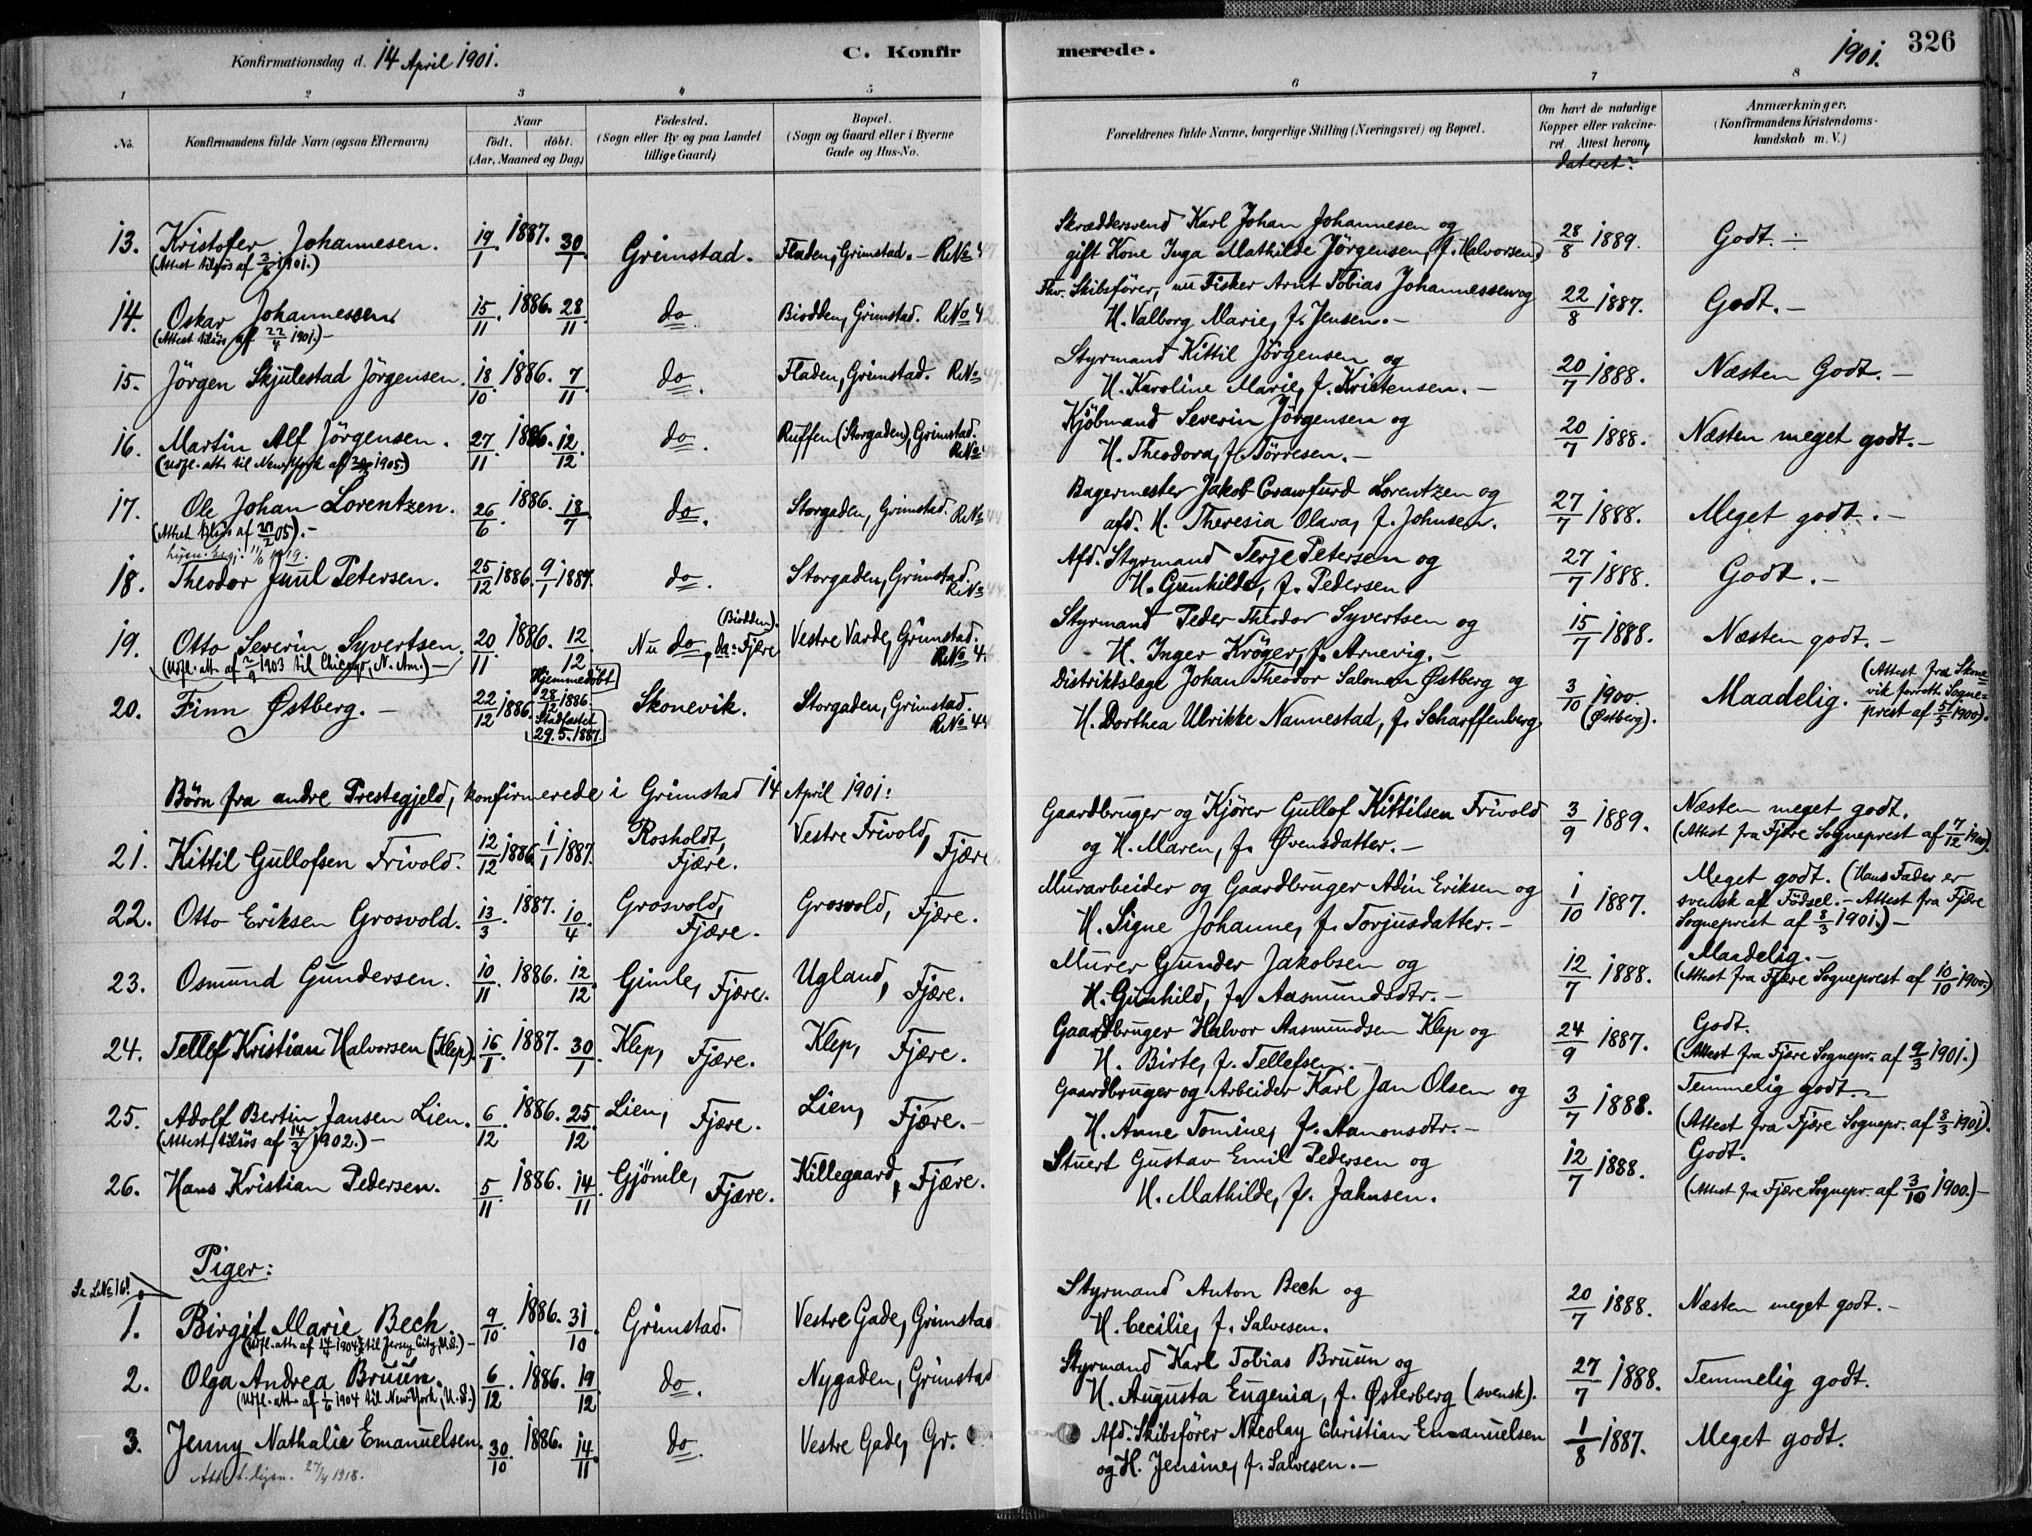 Konfirmationsdag d. 14 April 1901. C. Konfirmerede. 1901. 326
1 2 3 4 5 6 7 8
No. Konfirmandens fulde Navn (ogsaa Efternavn) Naar født. døbt. (Aar, Maaned og Dag) Fødested. (Sogn eller By og paa Landet tillige Gaard) Bopæl. (Sogn og Gaard eller i Byerne Gade og Hus-No. Forældrenes fulde Navne, borgerlige Stilling (Næringsvei) og Bopæl. Om havt de naturlige Kopper eller vakcineret. Attest herom, dateret? Anmærkninger. (Konfirmandens Kristendomskundskab m. V.)
13. Kristofer Johannesen. 19/1 1887. 30/1 Grimstad. Fladen, Grimstad. – R№ 4 Skræddersvend Karl Johan Johannesen og gift Kone Inga Mathilde Jörgensen, (f. Halvorsen) 28/8 1889. Godt. –
14. Oskar Johannessen. 15/11 1886. 28/11 do. Biodden, Grimstad. R№ 42. Fhv. Skibsförer, nu Fisker Arnt Tobias Johannessen og H. Valborg Marie, f. Jensen. – 22/8 1887. Godt. –
(Attest tilløs af 22/4 1901.) –
15. Jörgen Skjulestad Jörgensen. 18/10 1886. 7/11 do. Fladen, Grimstad. R№ Styrmand Kittil Jörgensen og H. Karoline Marie, f. Kristensen. – 20/7 1888. Næsten Godt. –
16. Martin Alf Jörgensen. 27/11 1886. 12/12 do. Ruffen (Storgaden), Grimstad. R№ Kjöbmand Severin Jörgensen og H. Theodora, f. Törresen. – 20/7 1888. Næsten meget godt. –
(Udfl. att. til New York af 1905)
17. Ole Johan Lorentzen. 26/6 1886. 18/7 do. Storgaden, Grimstad. R№ 44 Bagermester Jakob Crawfurd Lorentzen og afd. H. Theresia Olava, f. Johnsen. 27/7 1888. Meget godt. –
18. Theodor Juul Petersen. 25/12 1886. 9/1 1887. do. Storgaden, Grimstad. R№ 44 Afd. Styrmand Terje Petersen og H. Gunhilde, f. Pedersen. 27/7 1888. Godt. –
19. Otto Severin Syvertsen. 20/11 1886. 12/12 Nu do, da: Fjære (Biodden). Vestre Varde, Grimstad. R№ 4 Styrmand Peder Theodor Syvertsen og H. Inger Kröger, f. Arnevig. – 15/7 1888. Næsten godt. –
(Udfl. att. af 2/9 1903 til Chicago, N. Am.) –
20. Finn Østberg. – 22/12 1886. Hjemmedöbt 28/12 1886. Stadfæstet 29.5.1887. Skonevik. Storgaden, Grimstad. R№ 44 Distriktslæge Johan Theodor Saloman Østberg og H. Dorthea Ulrikke Nannestad, f. Scharffenberg 3/10 1900. (Østberg). Maadelig. (Attest fra Skonevik forrett. Sogneprest af 5/5 1900).
Börn fra andre Prestegjeld, konfirmerede i Grimstad 14 April 1901:
21. Kittil Gullofsen Frivold. 12/12 1886. 1/1 1887. Rosholdt, Fjære. Vestre Frivold, Fjære Gaardbruger og Kjörer Gullof Kittilsen Frivold og H. Maren, f. Øvensdatter. – 3/9 1889. Næsten meget godt. (Attest fra Fjære Sogneprest af 7/12 1900).
22. Otto Eriksen Grosvold. 13/3 1887. 10/4 Grosvold, Fjære. Grosvold, Fjære. Murarbeider og Gaardbruger Adin Eriksen og H. Signe Johanne, f. Torjusdatter. – 1/10 1887. Meget godt. (Hans Fader er svensk af Födsel. – Attest fra Fjære Sogneprest af 8/3 1901.) –
23. Osmund Gundersen. 10/11 1886. 12/12 Gimle, Fjære. Ugland, Fjære. Murer Gunder Jakobsen og H. Gunhild, f. Aasmundsdtr. – 12/7 1888. Maadelig. – (Attest fra Fjære Sogneprest af 10/10 1900.)
24. Tellef Kristian Halvorsen (Klep). 16/1 1887. 30/1 Klep, Fjære. Klep, Fjære. Gaardbruger Halvor Aasmundsen Klep og H. Birte, f. Tellefsen. 24/9 1887. Godt. (Attest fra Fjære Sognepr. af 9/3 1901.)
25. Adolf Bertin Jansen Lien. 6/12 1886. 25/12 Lien, Fjære. Lien, Fjære. – Gaardbruger og Arbeider Karl Jan Olsen og H. Anne Tomine, f. Aanonsdtr. – 3/7 1888. Temmelig godt. – (Attest fra Fjære Sognepr. af 8/3 1901).
(Attest tilløs af 14/3 1902.) –
26. Hans Kristian Pedersen. 5/11 1886. 14/11 Gjömle, Fjære. Killegaard, Fjære. Stuert Gustav Emil Pedersen og H. Mathilde, f. Jahnsen. 12/7 1888. Godt. (Attest fra Fjære Sognepr. af 3/10 1900.) –
Piger:
Se L№ 16!
1. Birgit Marie Bech. 9/10 1886. 31/10 Grimstad. Vestre Gade, Grimstad Styrmand Anton Bech og H. Cecilie, f. Salvesen. 20/7 1888. Næsten meget godt. –
(Udfl. att. af 14/4 1904 til Jersey City, U.S.) –
2. Olga Andrea Bruun. 6/12 1886. 19/12 do. Nygaden, Grimstad Styrmand Karl Tobias Bruun og H. Augusta Eugenia, f. Østerberg (svensk). 27/7 1888. Temmelig godt.
(Udfl. att. af 1904 til New York, U.S.)
3. Jenny Nathalie Emanuelsen. 30/10 1886. 14/11 do. Vestre Gade, Gr. Afd. Skibsförer Nicolay Christian Emanuelsen og H. Jensine, f. Salvesen. – 1/8 1887. Meget godt.
27/4 1918.